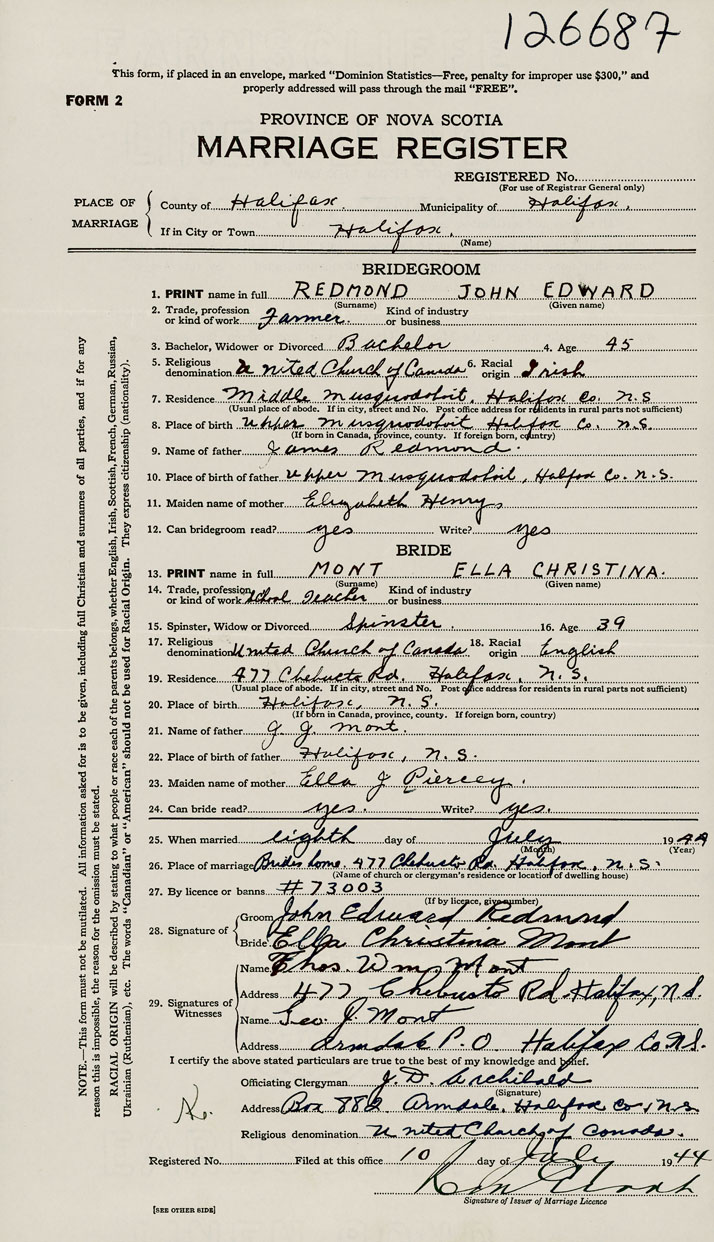 126687
This form, if placed in an envelope, marked "Dominion Statistics—Free, penalty for improper use $300," and
properly addressed will pass through the mail "FREE".
FORM 2
PROVINCE OF NOVA SCOTIA
MARRIAGE REGISTER
REGISTERED No.
(For use of Registrar General only)
PLACE OF MARRIAGE
County of Halifax. Municipality of Halifax.
If in City or Town Halifax.
(Name)
BRIDEGROOM
1. PRINT name in full REDMOND JOHN EDWARD
(Surname) (Given name)
2. Trade, profession or kind of work Farmer. Kind of industry or business
3. Bachelor, Widower or Divorced Bachelor 4. Age 45
5. Religious denomination United Church of Canada 6. Racial origin Irish
7. Residence Middle Musquodoboit, Halifax Co. N.S
(Usual place of abode. If in city, street and No. Post office address for residents in rural parts not sufficient)
8. Place of birth Upper Musquodoboit Halifax Co. N.S.
(If born in Canada, province, county. If foreign born, country)
9. Name of father James Redmond.
10. Place of birth of father Upper Musquodoboit, Halifax Co. N.S.
11. Maiden name of mother Elizabeth Henry,
12. Can bridegroom read? yes Write? yes
BRIDE
13. PRINT name in full MONT ELLA CHRISTINA.
(Surname) (Given name)
14. Trade, profession or kind of work School Teacher Kind of industry or business
15. Spinster, Widow or Divorced Spinster. 16. Age 39
17. Religious denomination United Church of Canada 18. Racial origin English
19. Residence 477 Chebucto Rd. Halifax, N.S.
(Usual place of abode. If in city, street and No. Post office address for residents in rural parts not sufficient)
20. Place of birth Halifax, N.S.
(If born in Canada, province, county. If foreign born, country)
21. Name of father G. J. Mont.
22. Place of birth of father Halifax, N.S.
23. Maiden name of mother Ella J Piercey.
24. Can bride read? yes. Write? yes.
25. When married eighth day of July 1944
(Month) (Year)
26. Place of marriage Brides home. 477 Chebucto Rd. Halifax, N.S.
(Name of church or clergyman's residence or location of dwelling house)
27. By licence or banns #73003
(If by licence, give number)
28. Signature of Groom John Edward Redmond
Bride Ella Christina Mont
29. Signatures of Witnesses
Name Thos. Wm. Mont
Address 477 Chebucto Rd. Halifax, N.S.
Name Geo J. Mont
Address Armdale P.O. Halifax Co. N.S.
I certify the above stated particulars are true to the best of my knowledge and belief.
Officiating Clergyman J. D. Archibald
(Signature)
Address Box 882 Armdale, Halifax Co, N.S.
Religious denomination United Church of Canada.
Registered No. Filed at this office 10 day of July 1944
Signature of Issuer of Marriage Licence
[SEE OTHER SIDE]
NOTE.—This form must not be mutilated. All information asked for is to be given, including full Christian and surnames of all parties, and if for any
reason this is impossible, the reason for the omission must be stated.
RACIAL ORIGIN will be described by stating to what people or race each of the parents belongs, whether English, Irish, Scottish, French, German, Russian,
Ukrainian (Ruthenian), etc. The words "Canadian" or "American" should not be used for Racial Origin. They express citizenship (nationality).